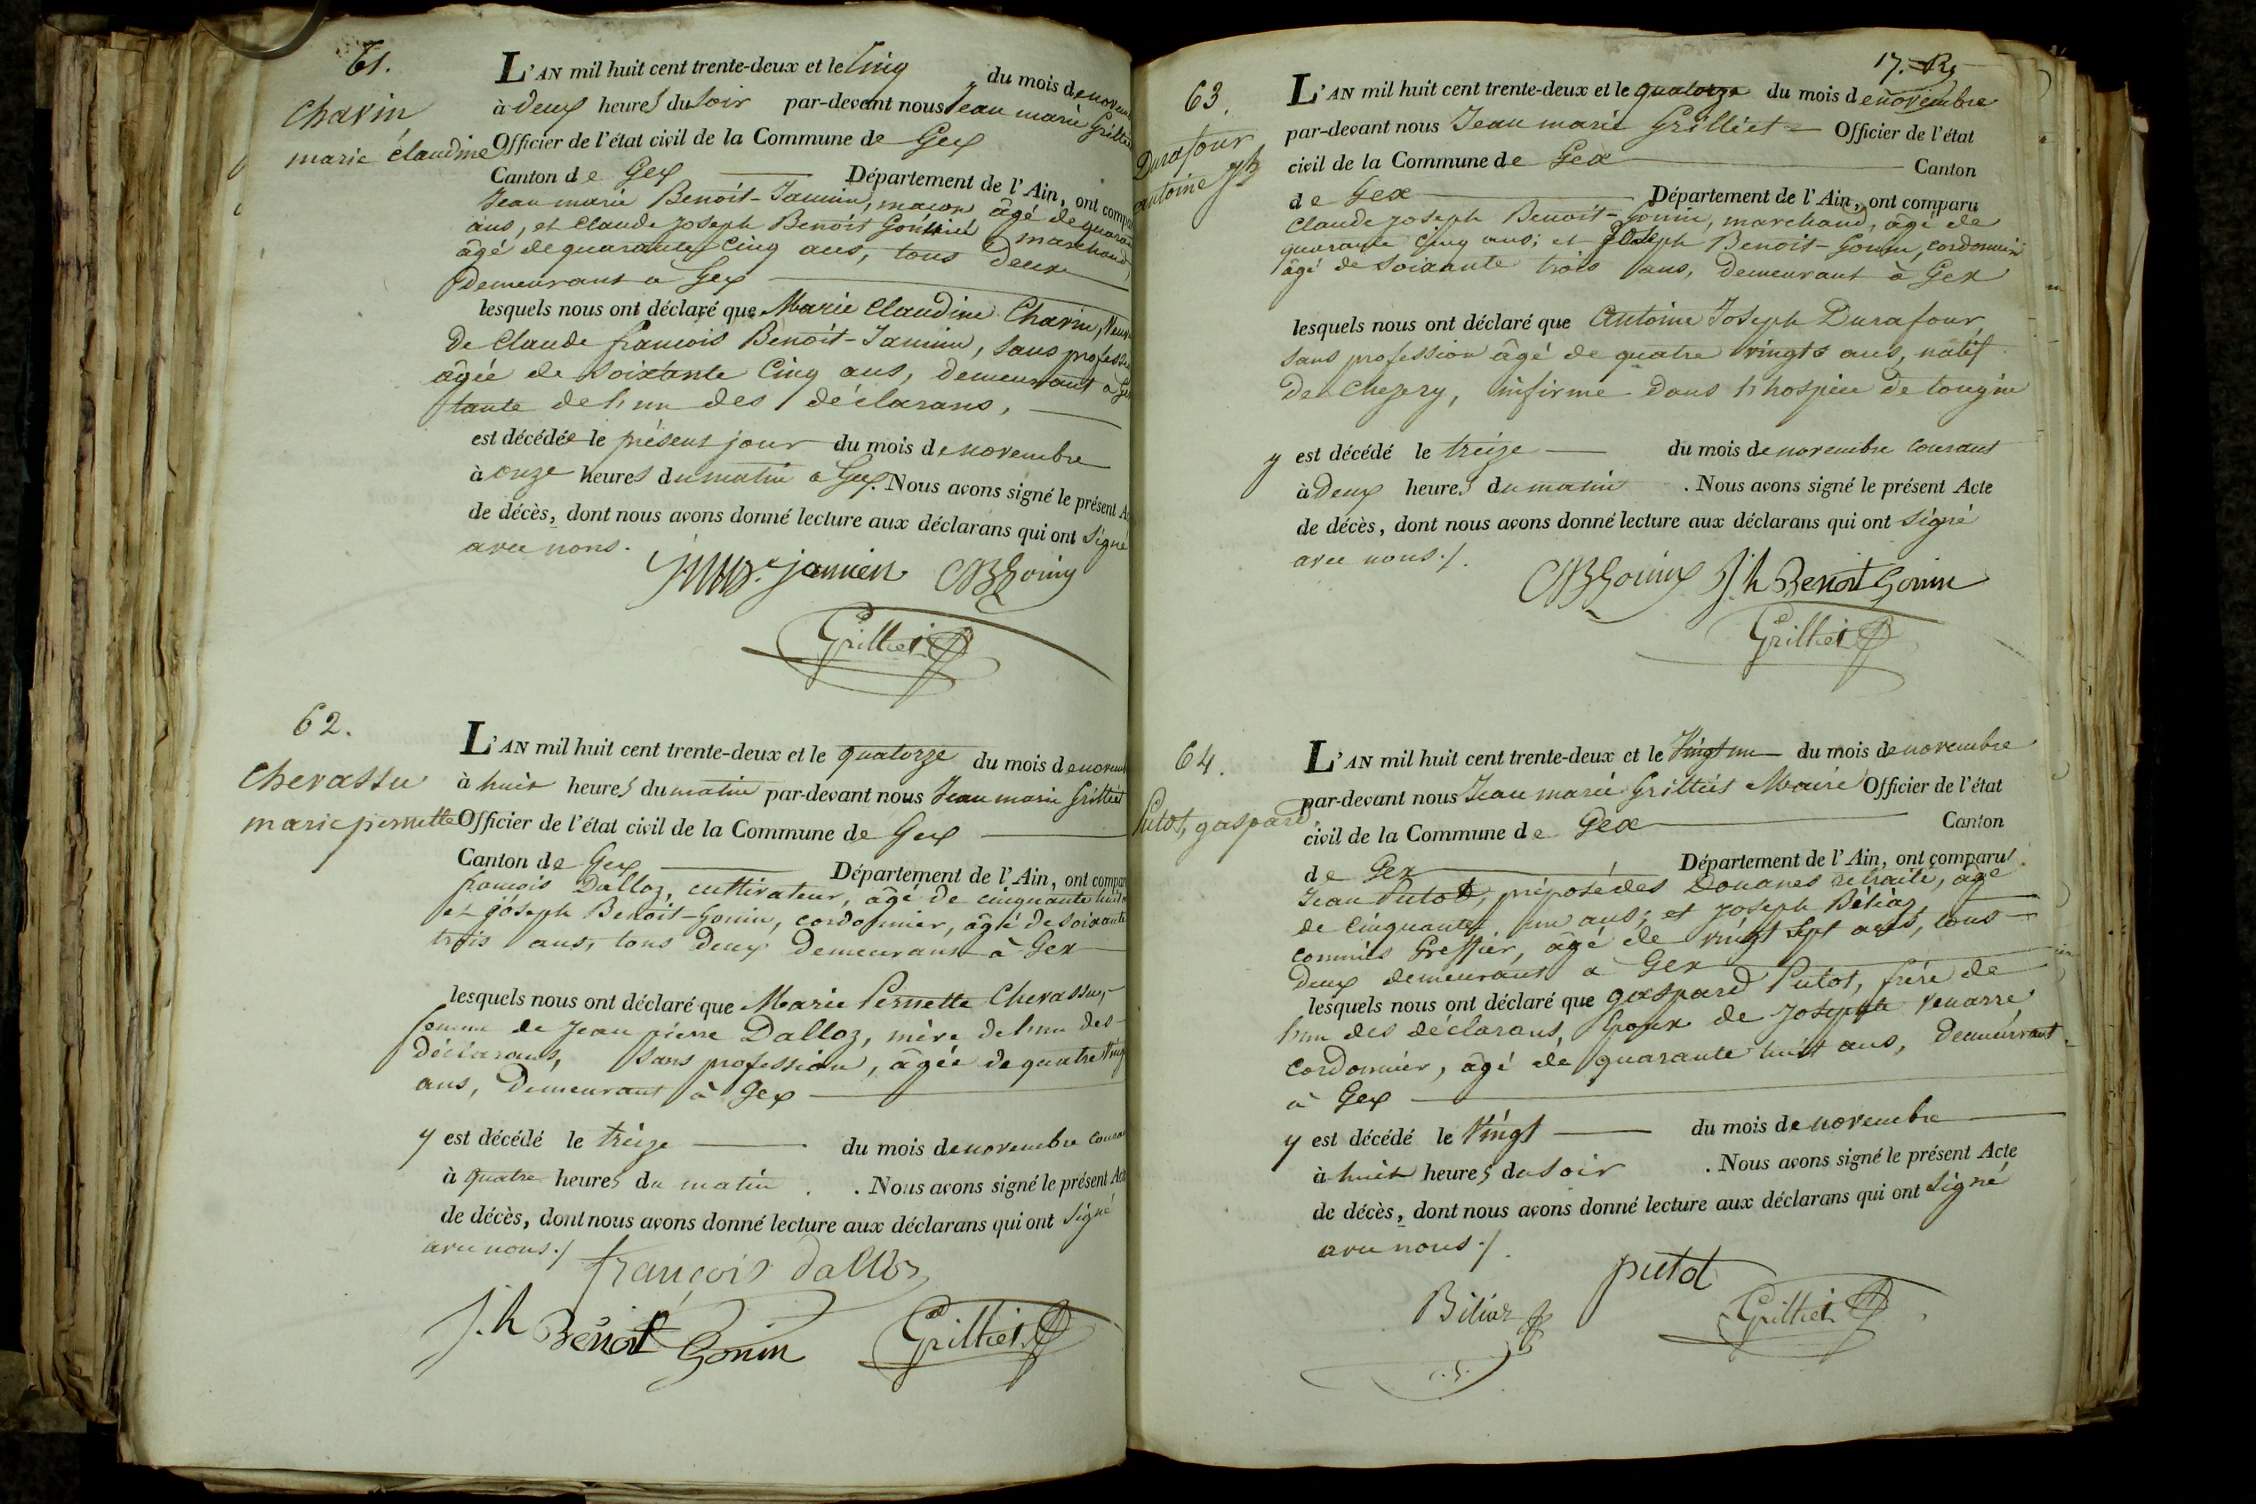 61.
Chavin
marie claudine
L'AN mil huit cent trente-deux et le Cinq du mois de
à deux heures du soir par-devant nous Jean marie
Officier de l'état civil de la Commune de Gex
Canton de Gex Département de l'Ain, ont
Jean marie Benoit-Jannin, maçon âgé de
ans, et Claude Joseph Benoit Gonin marchand
âgé de quarante Cinq ans, tous deux
demeurans a Gex
lesquels nous ont déclaré que Marie Claudine Chavin,
de Claude françois Benoit-Jannin, sans
âgée de soixante Cinq ans, demeurant a
tante de l'un des déclarans,
est décédée le présent jour du mois de novembre
à onze heures du matin a Gex. Nous avons signé le présent
de décès, dont nous avons donné lecture aux déclarans qui ont signé
avec nous.
CJBGonin
Grilliet
62.
Chevassu
marie pernette
L'AN mil huit cent trente-deux et le quatorze du mois de
à huit heures du matin par-devant nous Jean marie Grilliet
Officier de l'état civil de la Commune de Gex
Canton de Gex Département de l'Ain, ont
françois Dalloz, cultivateur, âgé de cinquante
et joseph Benoit-Gonin, cordonnier, âgé de soixante
trois ans, tous deux demeurans à Gex
lesquels nous ont déclaré que Marie Pernette Chevassu,
femme de Jean pierre Dalloz, mère de l'un des
déclarans, sans profession, âgée de quatre vingt
ans, demeurant à Gex
y est décédé le treize du mois de novembre
à quatre heures du matin . . Nous avons signé le présent
de décès, dont nous avons donné lecture aux déclarans qui ont signé
avec nous./
françois dalloz
J.h Benoit Gonin Grilliet
17.
63.
Durafour
antoine Jh
L'AN mil huit cent trente-deux et le quatorze du mois de novembre
par-devant nous Jean marie Grilliet Officier de l'état
civil de la Commune de Gex Canton
de Gex Département de l'Ain, ont comparu
Claude joseph Benoit-Gonin, marchand, âgé de
quarante cinq ans; et joseph Benoit-Gonin, cordonnier
âgé de soixante trois ans, demeurant à Gex
lesquels nous ont déclaré que Antoine Joseph Durafour
sans profession âgé de quatre vingts ans, natif
de Chezery, infirme dans l'hospice de tougin
y est décédé le treize du mois de novembre courant
à deux heures du matin . Nous avons signé le présent Acte
de décès, dont nous avons donné lecture aux déclarans qui ont signé
avec nous./.
CJBGonin J.h Benoit Gonin
Grilliet
64.
Putot, gaspard
L'AN mil huit cent trente-deux et le Vingt un du mois de novembre
par-devant nous Jean marie Grilliet Maire Officier de l'état
civil de la Commune de Gex Canton
de Gex Département de l'Ain, ont comparu
Jean Putot, préposé des Douanes retraité, âgé
de Cinquante un ans; et joseph Béliaz,
commis Greffier, âgé de vingt sept ans, tous
deux demeurans a Gex
lesquels nous ont déclaré que gaspard Putot, frère de
l'un des déclarans, Epoux de Josephte
cordonnier, âgé de quarante huit ans, demeurant
à Gex
y est décédé le Vingt du mois de novembre
à huit heures du soir . Nous avons signé le présent Acte
de décès, dont nous avons donné lecture aux déclarans qui ont signé
avec nous./.
putot
Grilliet